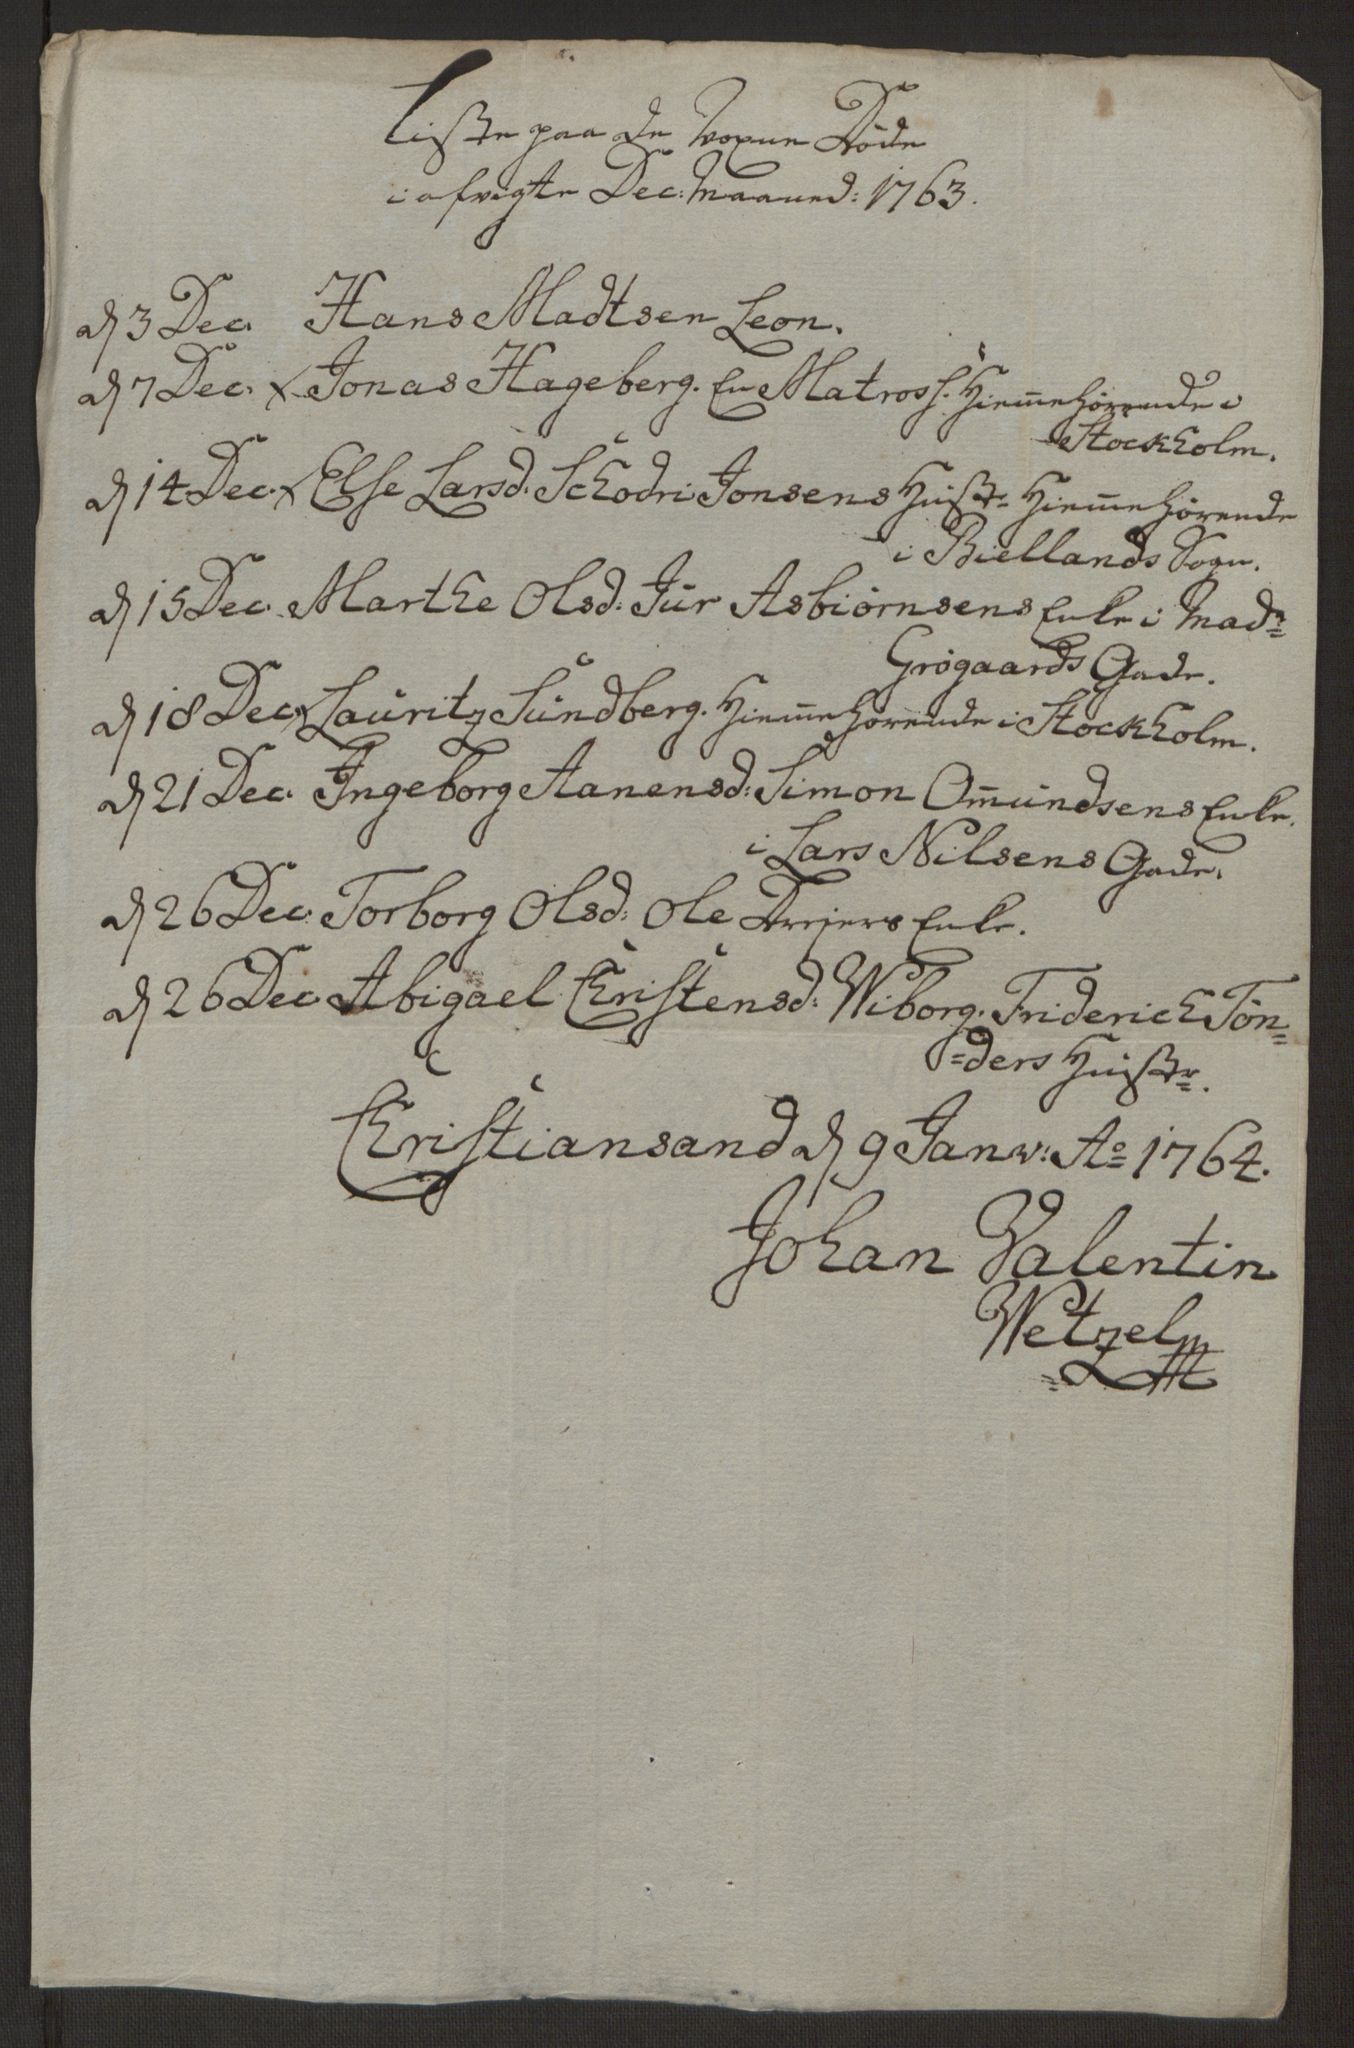 Liste paa de voxne Døde
i afvigte Dec: Maaned: 1763.
d 3 Dec. Hans Madtsen Leon.
d 7 Dec. x Jonas Hageberg. En Matross. Hiemehørende i
Stockholm.
d 14 Dec. x Else Larsd: Schodri Jonsens Hustr= Hiemehørende
i Biellands Sogn.
d 15 Dec. Marthe Olsd: Jür Asbiørnsens Enke i Mad=
Grøgaards Gade.
d 18 Dec. x Lauritz Sundberg. Hiemehørende i Stockholm.
d 21 Dec. Ingeborg Aanensd: Simon Omundsens Enke.
i Lars Nilsens Gade.
d 26 Dec. Torborg Olsd: Ole Dreiers Enke.
d 26 Dec. Abigael Christensd: Wiborg. Friderich Tøn=
=ders Hustr.
Christiansand d 9 Janv: Ao 1764.
Johan Valentin
Wetzel